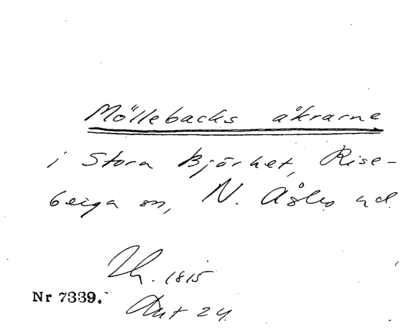 Möllebacks åkrarne
i Stora Bjørket, Rise-
berga sn, N. Åsbo hd
1815
Nr 7339. Akt 24